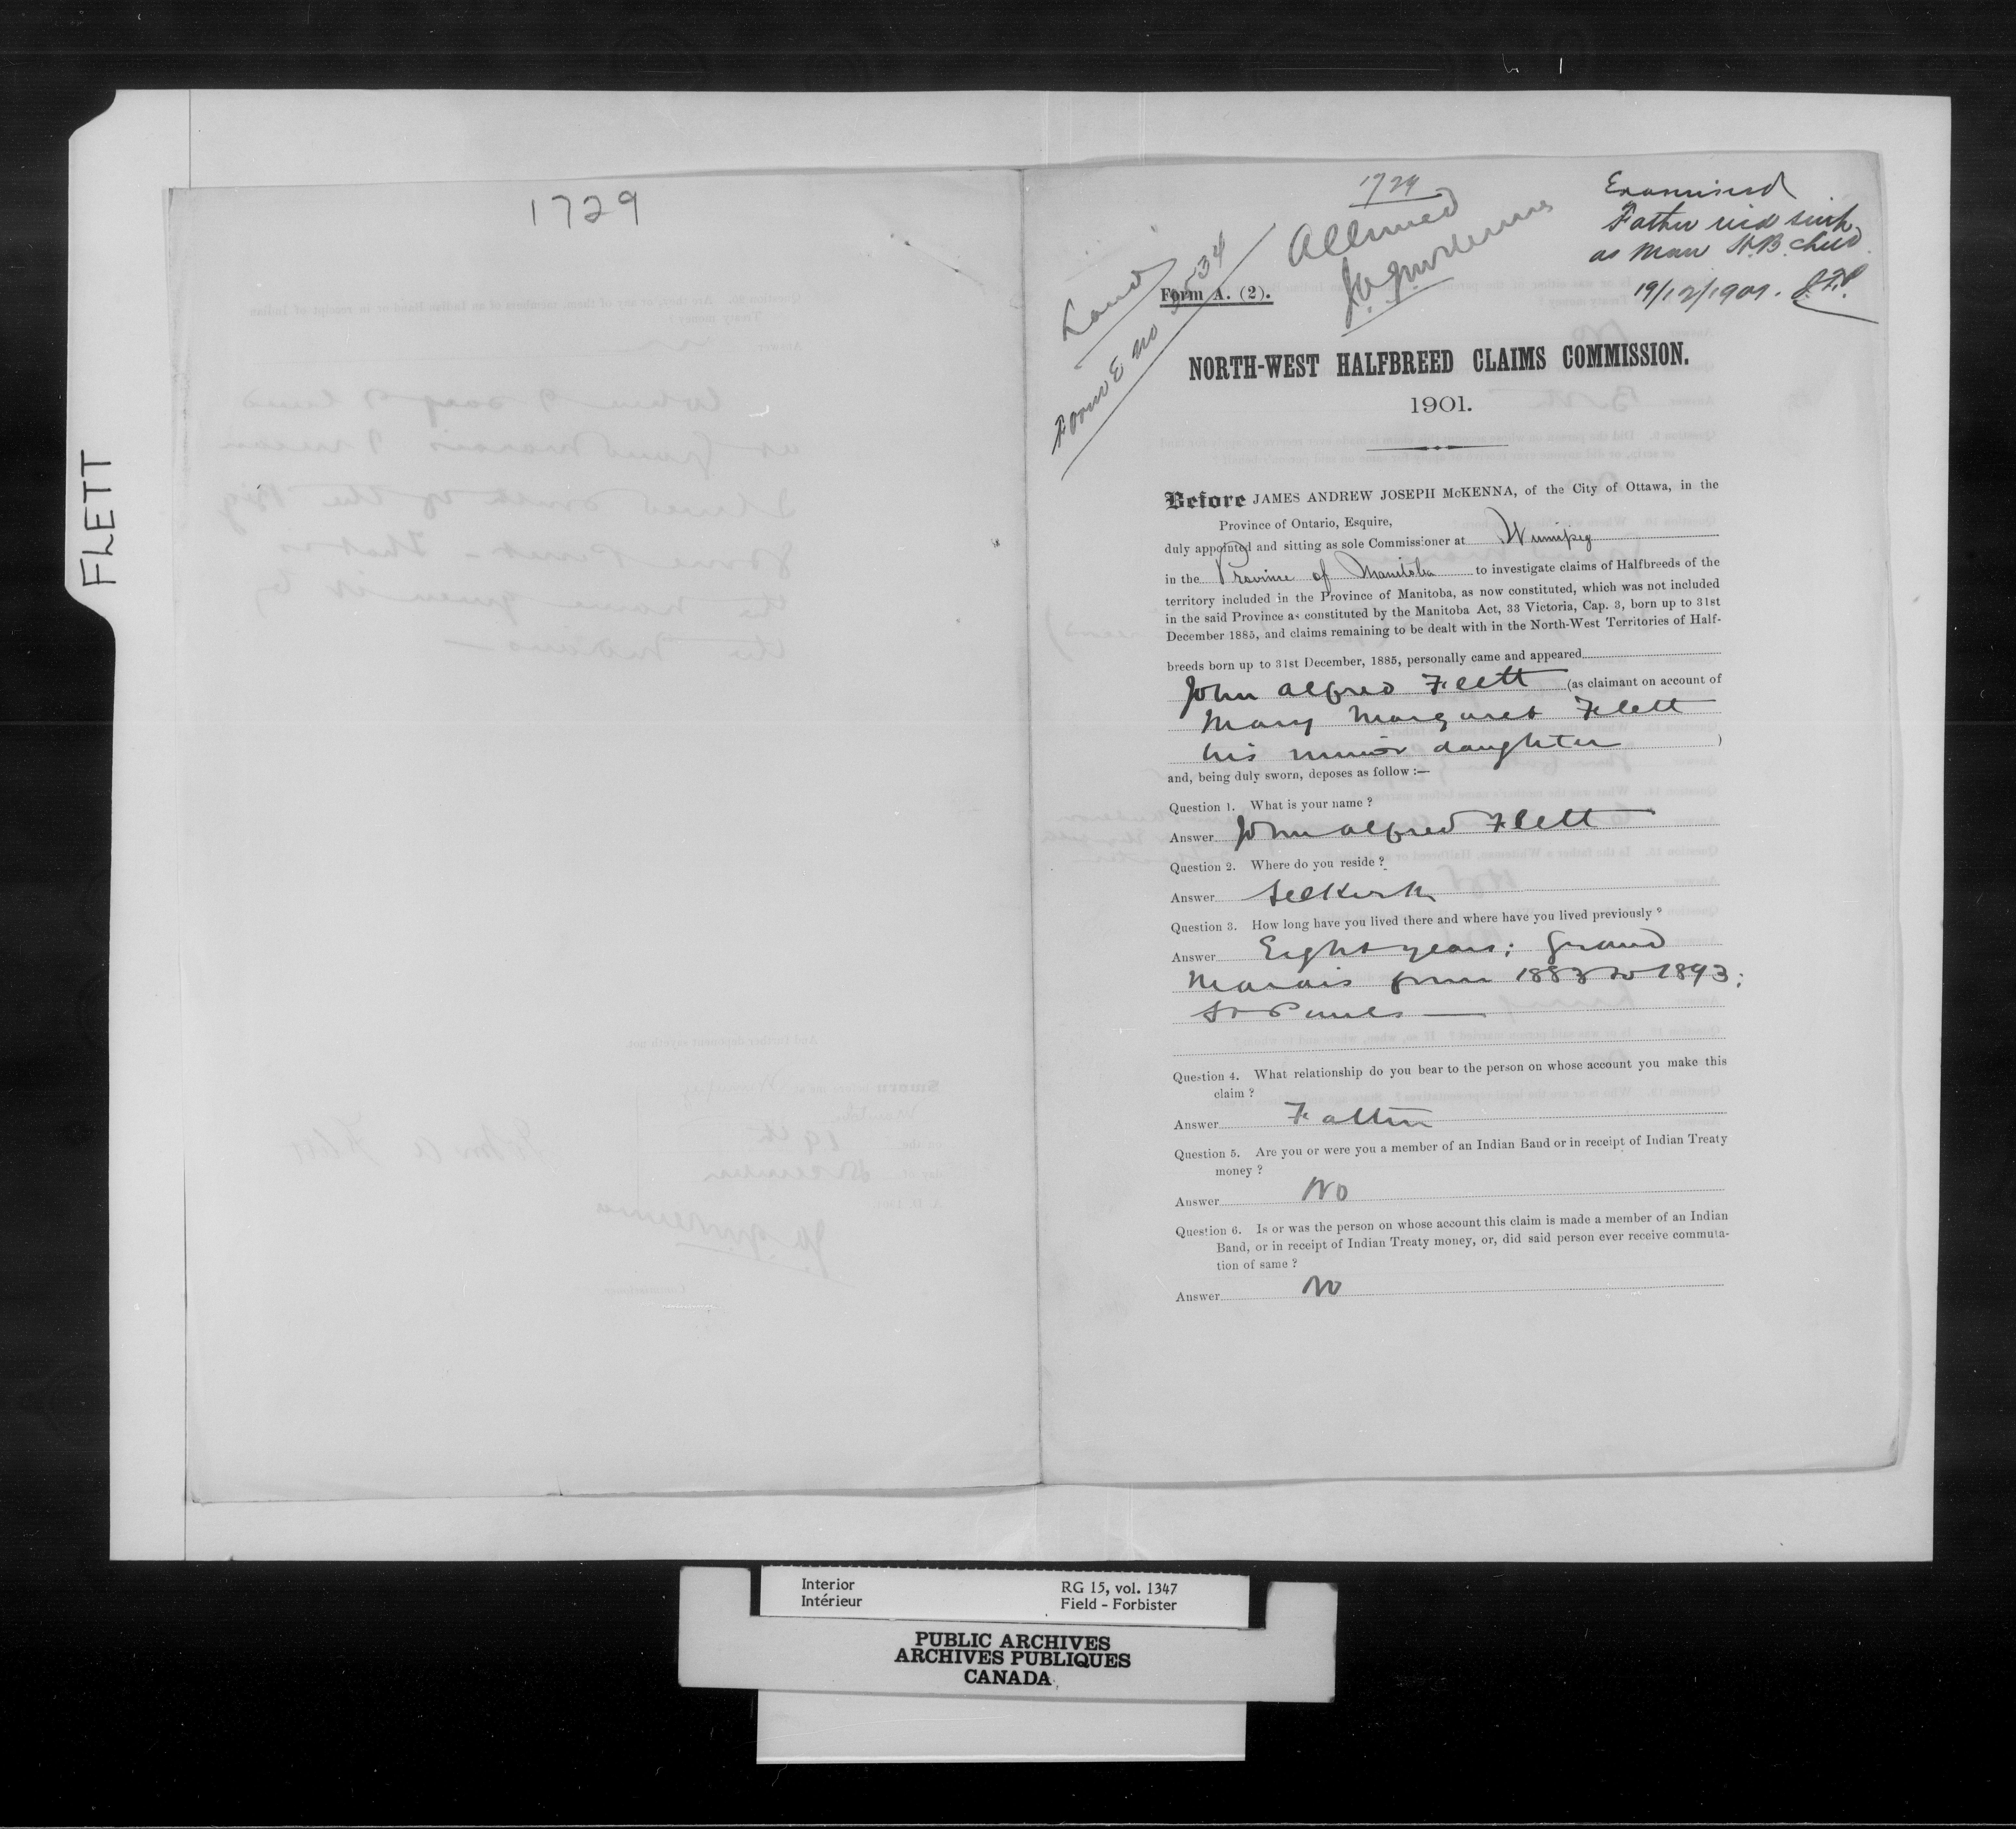 FLETT
1729
1729
Allowed
J.A.J. McKenna
Examined
Father recd scrip
as Man H.B. child
19/12/1901.
Land
Form E no 3534
Form A. (2).
NORTH-WEST HALFBREED CLAIMS COMMISSION.
1901.
Before JAMES ANDREW JOSEPH McKENNA, of the City of Ottawa, in the
Province of Ontario, Esquire,
duly appointed and sitting as sole Commissioner at Winnipeg
in the Province of Manitoba to investigate claims of Halfbreeds of the
territory included in the Province of Manitoba, as now constituted, which was not included
in the said Province as constituted by the Manitoba Act, 33 Victoria, Cap. 3, born up to 31st
December 1885, and claims remaining to be dealt with in the North-West Territories of Half-
breeds born up to 31st December, 1885, personally came and appeared
John Alfred Flett (as claimant on account of
Mary Margaret Flett
his minor daughter )
and, being duly sworn, deposes as follow :—
Question 1. What is your name ?
Answer John Alfred Flett
Question 2. Where do you reside ?
Answer Selkirk
Question 3. How long have you lived there and where have you lived previously ?
Answer Eight years; Grand
Marais from 1883 to 1893;
St Pauls —
Question 4. What relationship do you bear to the person on whose account you make this
claim ?
Answer Father
Question 5. Are you or were you a member of an Indian Band or in receipt of Indian Treaty
money ?
Answer No
Question 6. Is or was the person on whose account this claim is made a member of an Indian
Band, or in receipt of Indian Treaty money, or, did said person ever receive commuta-
tion of same ?
Answer No
Interior
Intérieur
RG 15, vol. 1347
Field - Forbister
PUBLIC ARCHIVES
ARCHIVES PUBLIQUES
CANADA